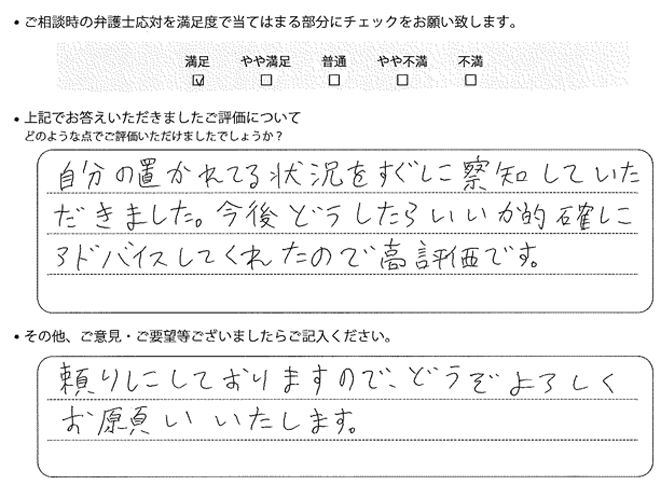 • ご相談時の弁護士応対を満足度で当てはまる部分にチェックをお願い致します。
満足 やや満足 普通 やや不満 不満
☑ □ □ □ □
• 上記でお答えいただきましたご評価について
どのような点でご評価いただけましたでしょうか？
自分の置かれてる状況をすぐに察知していた
だきました。今後どうしたらいいか的確に
アドバイスしてくれたので高評価です。
• その他、ご意見・ご要望等ございましたらご記入ください。
頼りにしておりますので、どうぞよろしく
お願いいたします。